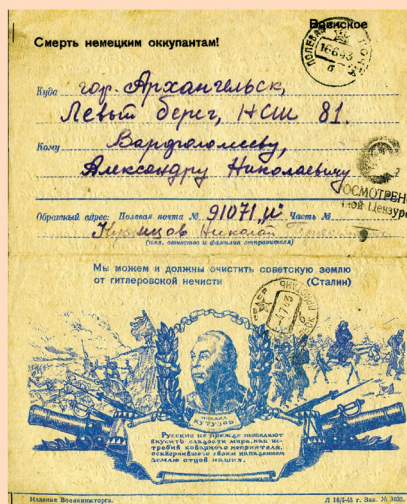 Воинское
Смерть немецким оккупантам!
16 6 43
Куда гор. Архангельск,
Левый берег, НСШ 81.
Кому Варфоломееву,
Александру Николаевичу
ОСМОТРЕНО
Цензурой
Обратный адрес: Полевая почта № 91071 „И" Часть №
Николай
(имя, отчество и фамилия отправителя)
Мы можем и должны очистить советскую землю
от гитлеровской нечисти (Сталин)
МИХАИЛ
КУТУЗОВ
Русские не прежде пожелают
вкусить сладости мира, как ис-
требив коварного неприятеля,
осквернившего своим нападением
землю отцов наших.
Издание Военкниторга.